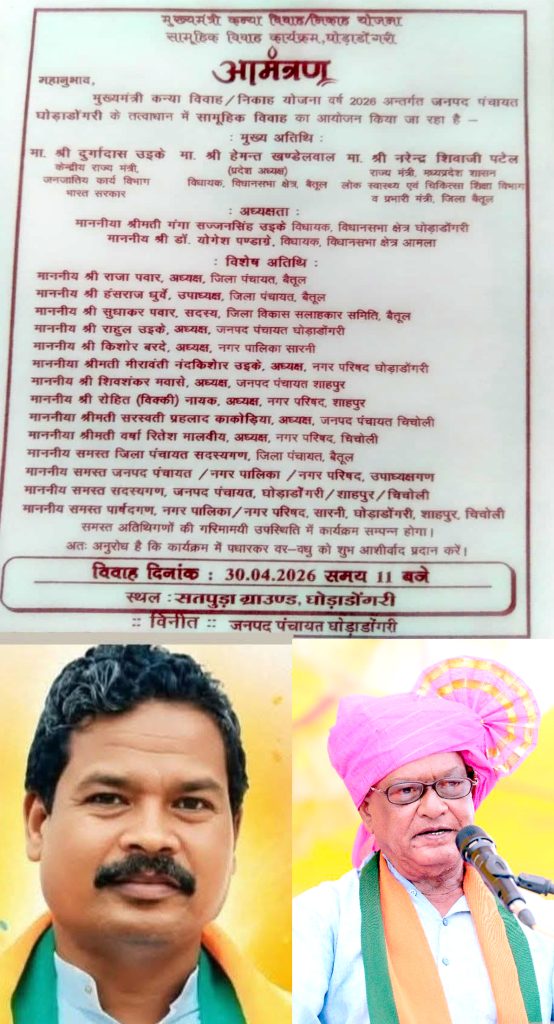 मुख्यमंत्री कन्या विवाह/निकाह योजना
सामूहिक विवाह कार्यक्रम, घोड़ाडोंगरी
आमंत्रण
महानुभाव,
मुख्यमंत्री कन्या विवाह/निकाह योजना वर्ष 2026 अन्तर्गत जनपद पंचायत
घोड़ाडोंगरी के तत्वाधान में सामूहिक विवाह का आयोजन किया जा रहा है –
: मुख्य अतिथि :
मा. श्री दुर्गादास उइके मा. श्री हेमन्त खण्डेलवाल मा. श्री नरेन्द्र शिवाजी पटेल
केन्द्रीय राज्य मंत्री, (प्रदेश अध्यक्ष) राज्य मंत्री, मध्यप्रदेश शासन
जनजातिय कार्य विभाग विधायक, विधानसभा क्षेत्र, बैतूल लोक स्वास्थ्य एवं चिकित्सा शिक्षा विभाग
भारत सरकार व प्रभारी मंत्री, जिला बैतूल
: अध्यक्षता :
माननीया श्रीमती गंगा सज्जनसिंह उइके विधायक, विधानसभा क्षेत्र घोड़ाडोंगरी
माननीय श्री डॉ. योगेश पण्डाग्रे, विधायक, विधानसभा क्षेत्र आमला
: विशेष अतिथि :
माननीय श्री राजा पवार, अध्यक्ष, जिला पंचायत, बैतूल
माननीय श्री हंसराज धुर्वे, उपाध्यक्ष, जिला पंचायत, बैतूल
माननीय श्री सुधाकर पवार, सदस्य, जिला विकास सलाहकार समिति, बैतूल
माननीय श्री राहुल उइके, अध्यक्ष, जनपद पंचायत घोड़ाडोंगरी
माननीय श्री किशोर बरदे, अध्यक्ष, नगर पालिका सारनी
माननीया श्रीमती मीरावंती नंदकिशोर उइके, अध्यक्ष, नगर परिषद घोड़ाडोंगरी
माननीय श्री शिवशंकर मवासे, अध्यक्ष, जनपद पंचायत शाहपुर
माननीय श्री रोहित (विक्की) नायक, अध्यक्ष, नगर परिषद, शाहपुर
माननीया श्रीमती सरस्वती प्रहलाद काकोड़िया, अध्यक्ष, जनपद पंचायत चिचोली
माननीया श्रीमती वर्षा रितेश मालवीय, अध्यक्ष, नगर परिषद, चिचोली
माननीय समस्त जिला पंचायत सदस्यगण, जिला पंचायत, बैतूल
माननीय समस्त जनपद पंचायत /नगर पालिका /नगर परिषद, उपाध्यक्षगण
माननीय समस्त सदस्यगण, जनपद पंचायत, घोड़ाडोंगरी/शाहपुर/चिचोली
माननीय समस्त पार्षदगण, नगर पालिका/नगर परिषद, सारनी, घोड़ाडोंगरी, शाहपुर, चिचोली
समस्त अतिथिगणों की गरिमामयी उपस्थिति में कार्यक्रम सम्पन्न होगा।
अतः अनुरोध है कि कार्यक्रम में पधारकर वर–वधु को शुभ आशीर्वाद प्रदान करें।
विवाह दिनांक : 30.04.2026 समय 11 बजे
स्थल : सतपुड़ा ग्राउण्ड, घोड़ाडोंगरी
:: विनीत :: जनपद पंचायत घोड़ाडोंगरी